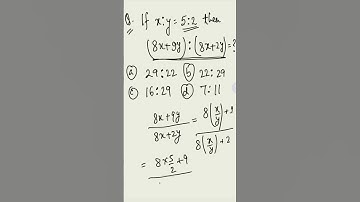 Q. If x:y = 5:2 then
(8x+9y):(8x+2y) = ?
ⓐ 29:22 ⓑ 22:29
ⓒ 16:29 ⓓ 7:11
(8x+9y)/(8x+2y) = (8(x/y)+9)/(8(x/y)+2)
= 8×5/2+9